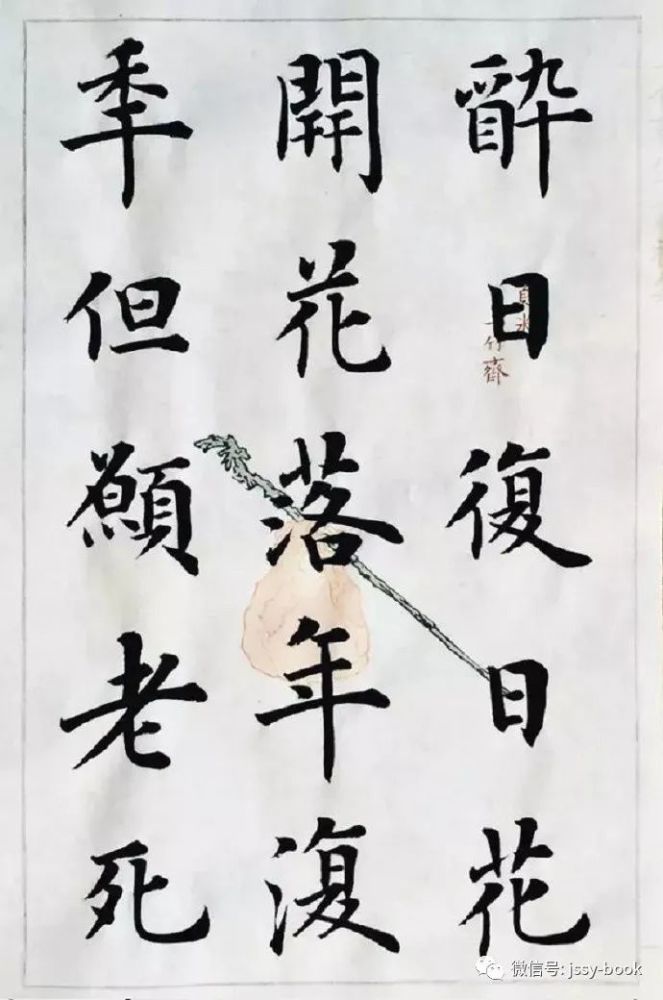 酔日復日花
開花落年復
秊但願老死
竹齋
微信号: jssy-book